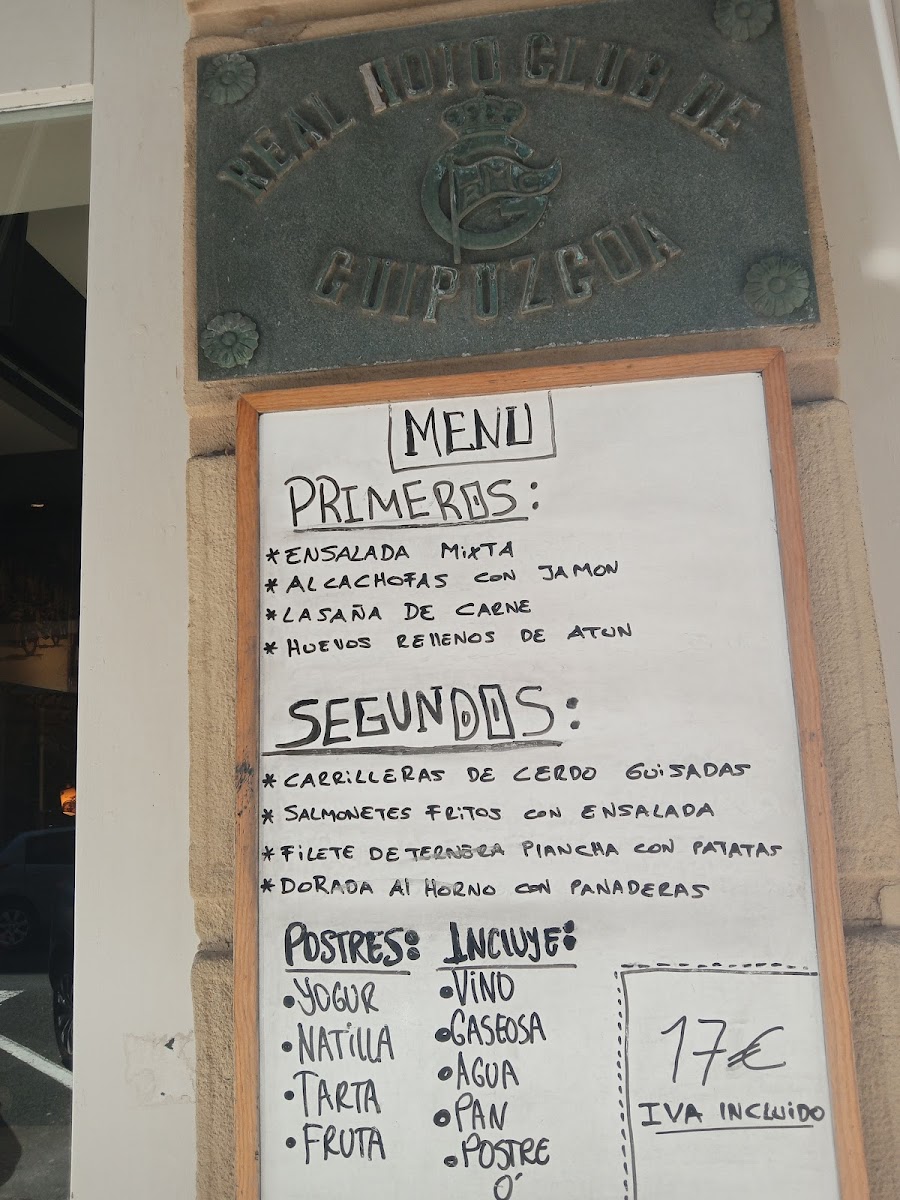 REAL MOTO CLUB DE
RMCG
GUIPUZCOA
MENU
PRIMEROS:
* ENSALADA MIXTA
* ALCACHOFAS CON JAMON
* LASAÑA DE CARNE
* HUEVOS RELLENOS DE ATUN
SEGUNDOS:
* CARRILLERAS DE CERDO GUISADAS
* SALMONETES FRITOS CON ENSALADA
* FILETE DE TERNERA PLANCHA CON PATATAS
* DORADA Al HORNO CON PANADERAS
POSTRES:
• YOGUR
• NATILLA
• TARTA
• FRUTA
INCLUYE:
• VINO
• GASEOSA
• AGUA
• PAN
• POSTRE
Ó
17€
IVA INCLUIDO